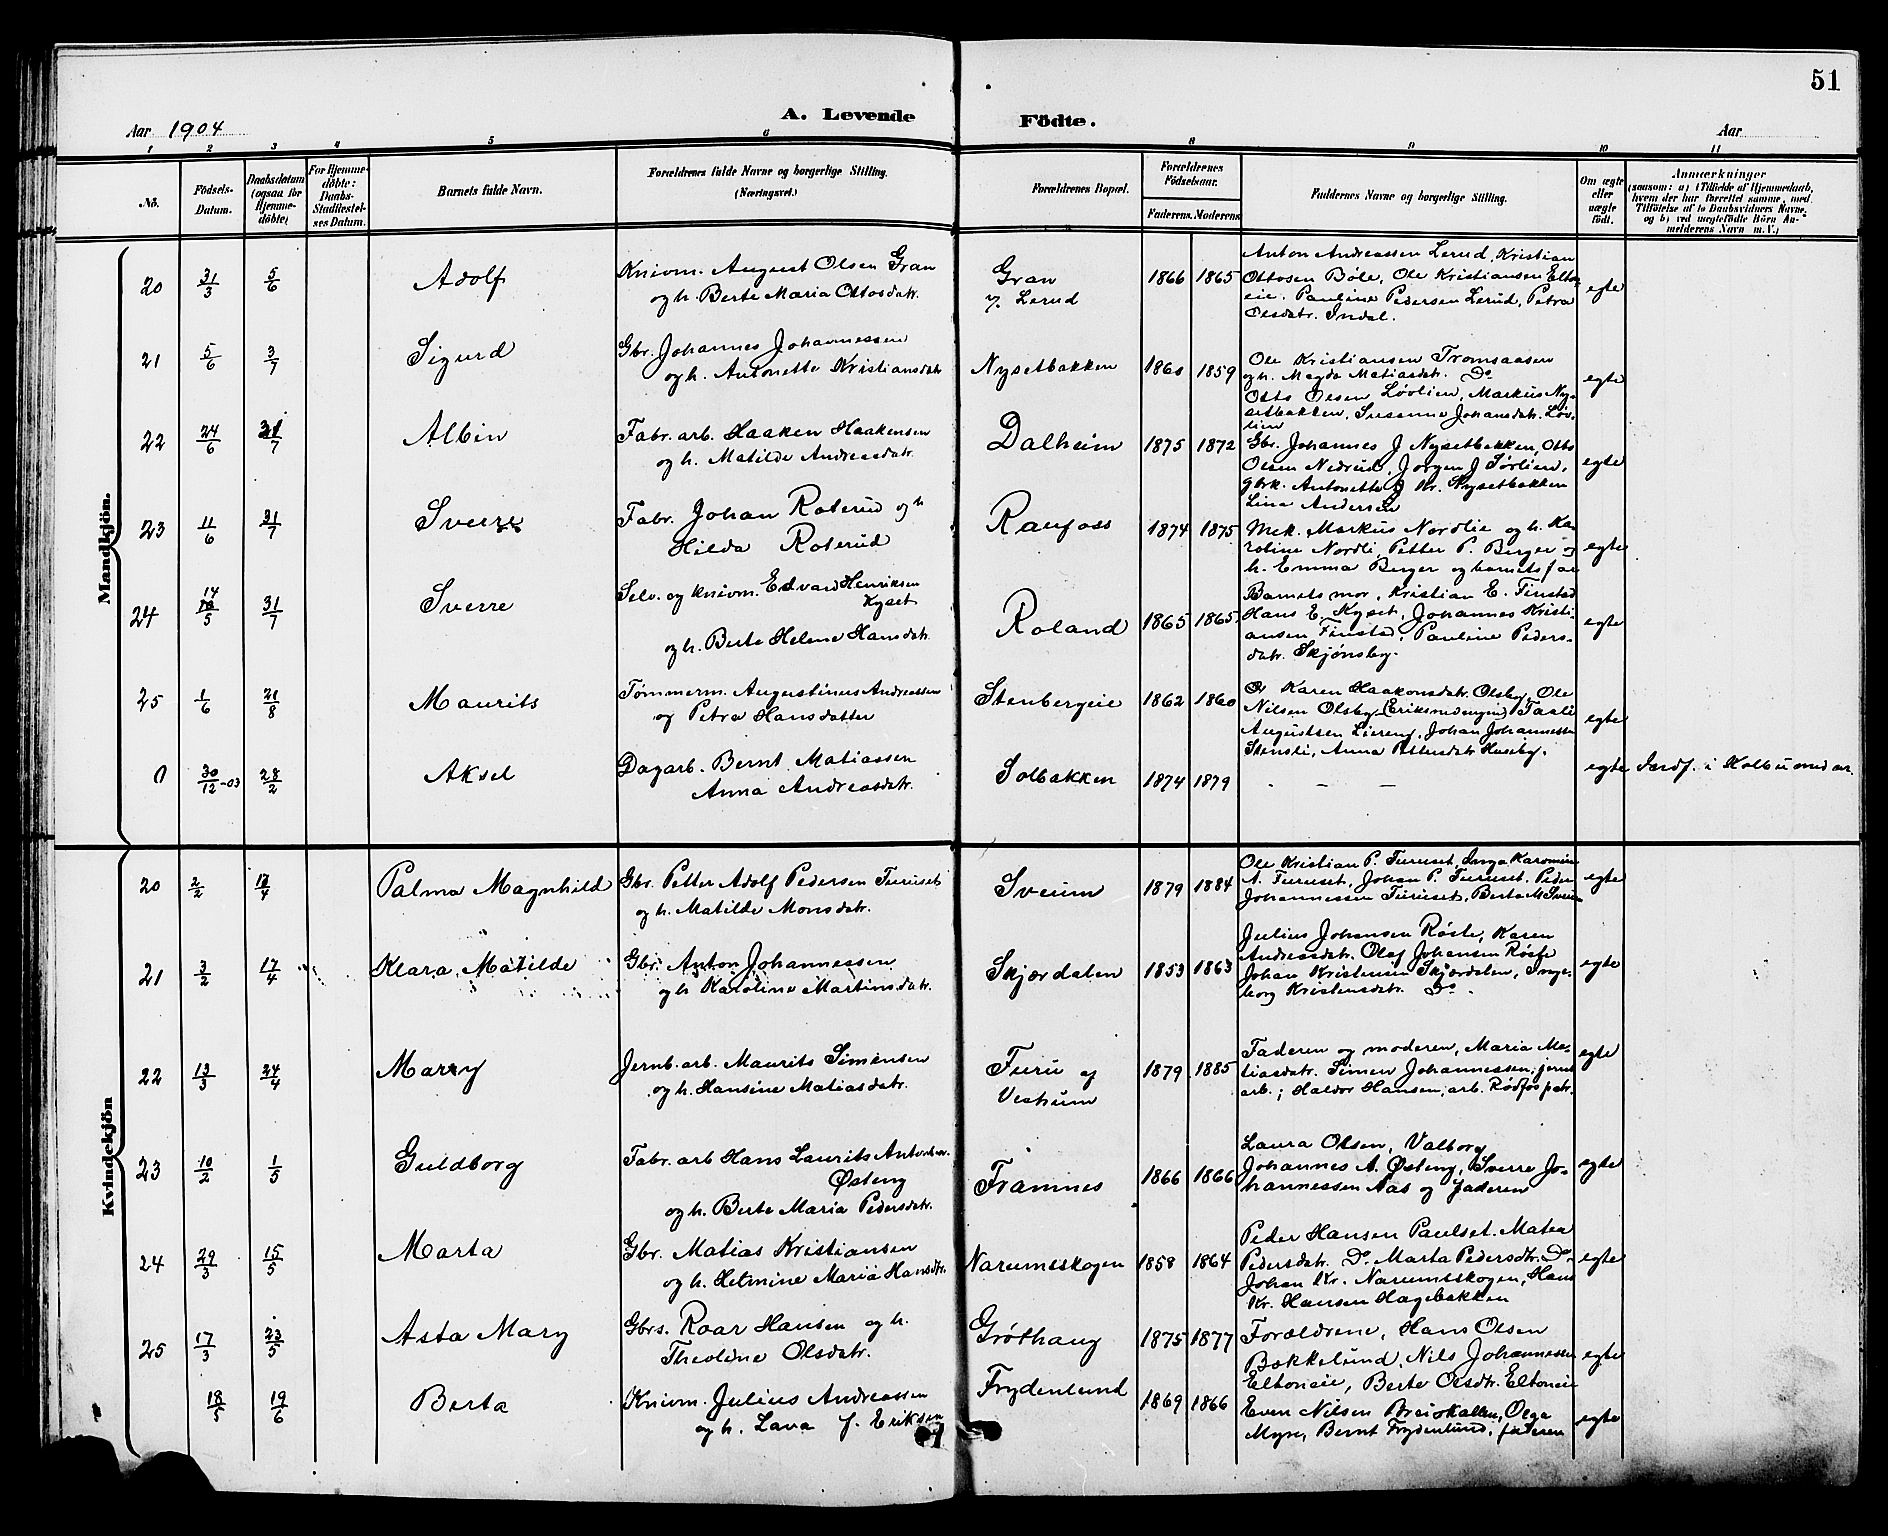 51
A. Levende Födte.
Aar 1904
Aar
1 2 3 4 5 6 8 9 10 11
No.
Födsels-Datum.
Daabsdatum (ogsaa for Hjemme-döbte)
For Hjemme-döbte: Daabs-Stadfæstelses Datum.
Barnets fulde Navn.
Forældrenes fulde Navne og borgerlige Stilling. (Næringsvei.)
Forældrenes Bopæl.
Forældrenes Födselsaar.
Faderens. Moderens
Faddernes Navne og borgerlige Stilling.
Om ægte eller uægte födt.
Anmærkninger
(saasom: a) i Tilfælde af Hjemmedaab,
hvem der har forrettet samme, med
Tilföielse af to Daabsvidners Navne,
og b) ved uægtefödte Börn An-
melderens Navn m. V.)
Mandkjön.
20 31/3 5/6 Adolf
Knivm. August Olsen Gran
og h. Berte Maria Ottosdatr.
Gran
v. Lerud
1866 1865
Anton Andreassen Lerud, Kristian
Ottosen Böle, Ole Kristiansen Elton-
eie. Pauline Pedersen Lerud, Petra
Olsdatr. Indal.
egte
21 5/6 3/7 Sigurd
Gbr. Johannes Johannessen
og h. Antonette Kristiansdatr
Nysetbakken
1860 1859
Ole Kristiansen Tromsaasen
og h. Magda Matiasdatr. Do
Otto Olsen Lövlien, Markus Ny-
setbakken, Susanne Johansdatr. Löv-
lien
egte
22 24/6 31/7 Albin
Fabr. arb. Haaken Haakensen
og h. Matilde Andreasdatr.
Dalheim
1875 1872
Gbr. Johannes J Nysetbakken, Otto
Olsen Nedrud, Jörgen J Sörlien,
gbrk. Antonette J Kr. Nysetbakken
Lina Andersen
egte
23 11/6 31/7 Sverre
Fabr. Johan Roterud og h
Hilda Roterud
Raufoss
1874 1875
Mek. Markus Nordlie og h. Ka-
roline Nordli, Petter P. Berger og
h. Emma Berger og barnets far
egte
24 14/5 31/7 Sverre
Selv. og knivm. Edvard Henriksen
Kyset
og h. Berte Helene Hansdatr.
Roland
1865 1865
Barnets mor, Kristian E. Finstad
Hans E. Kyset, Johannes Kristi-
ansen Finstad, Pauline Peders-
datr. Skjönsby.
egte
25 1/6 21/8 Maurits
Tömmerm. Augustinus Andreassen
og Petra Hansdatter
Stenbergeie
1862 1860
Karen Haakonsdatr. Olsby, Ole
Nilsen Olsby (Eriksrudengen) Taale
Augustsen Liereng, Johan Johannessen
Stensli, Anna Pettersdatr Huseby.
egte
0 30/12-03 28/2 Aksel
Dagarb. Bernt Matiassen
Anna Andreasdatr.
Solbakken
1874 1879
- - -
egte
Kolbu
Kvindekjön
20 2/2 17/4 Palma Magnhild
Gbr. Petter Adolf Pedersen Furuset
og h. Matilde Monsdatr.
Sveum
1879 1884
Ole Kristian P. Furuset, Inga Karomine
A. Furuset, Johan P. Furuset. Peder
Johannessen Furuset, Berta M Sveum
egte
21 3/2 17/4 Klara Matilde
Gbr. Anton Johannessen
og h Karoline Martinsdatr.
Skjærdalen
1853 1863
Julius Johansen Röste, Karen
Andreasdatr. Olaf Johansen Röste
Johan Kristensen Skjærdalen, Inge-
borg Kristensdatr. Do.
egte
22 13/3 24/4 Marry
Jernb. arb. Maurits Simensen
og h. Hansine Matiasdatr.
Furu og
Vestrum
1879 1885
Faderen og moderen, Maria Ma-
tiasdatr. Simen Johannessen, jernb
arb.; Haldor Hansen, arb. Rödfos patr.
egte
23 10/2 1/5 Guldborg
Fabr. arb Hans Laurits Antonsen
Østeng
og h. Berte Maria Pedersdatr.
Framnes
1866 1866
Laura Olsen, Valborg
Johannes A. Østeng, Sverre Jo-
hannessen Aas og faderen
egte
24 29/3 15/5 Marta
Gbr. Matias Kristiansen
og h. Helmine Maria Hansdtr.
Narumsskogen
1858 1864
Peder Hansen Paulset. Matea
Pedersdatr. Do. Marta Pedersdtr. Do.
Johan Kr. Narumsskogen, Hans
Kr. Hansen Hagebakken
egte
25 17/3 23/5 Asta Mary
Gbrs. Roar Hansen og h.
Theoline Olsdatr.
Gröthaug
1875 1877
Forældrene, Hans Olsen
Bakkelund, Nils Johannessen
Eltoneie, Berte Olsdtr. Eltoneie
egte
18/5 19/6 Berta
Knivm. Julius Andreassen
og h. Lava f. Eriksen
Frydenlund
1869 1866
Even Nilsen Breiskallen, Olga
Myre, Bernt Frydenlund, faderen
egte